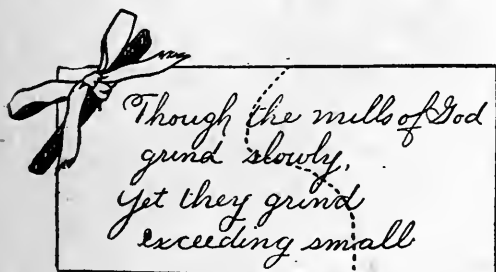 Though the mills of God
grind slowly,
Yet they grind
exceeding small